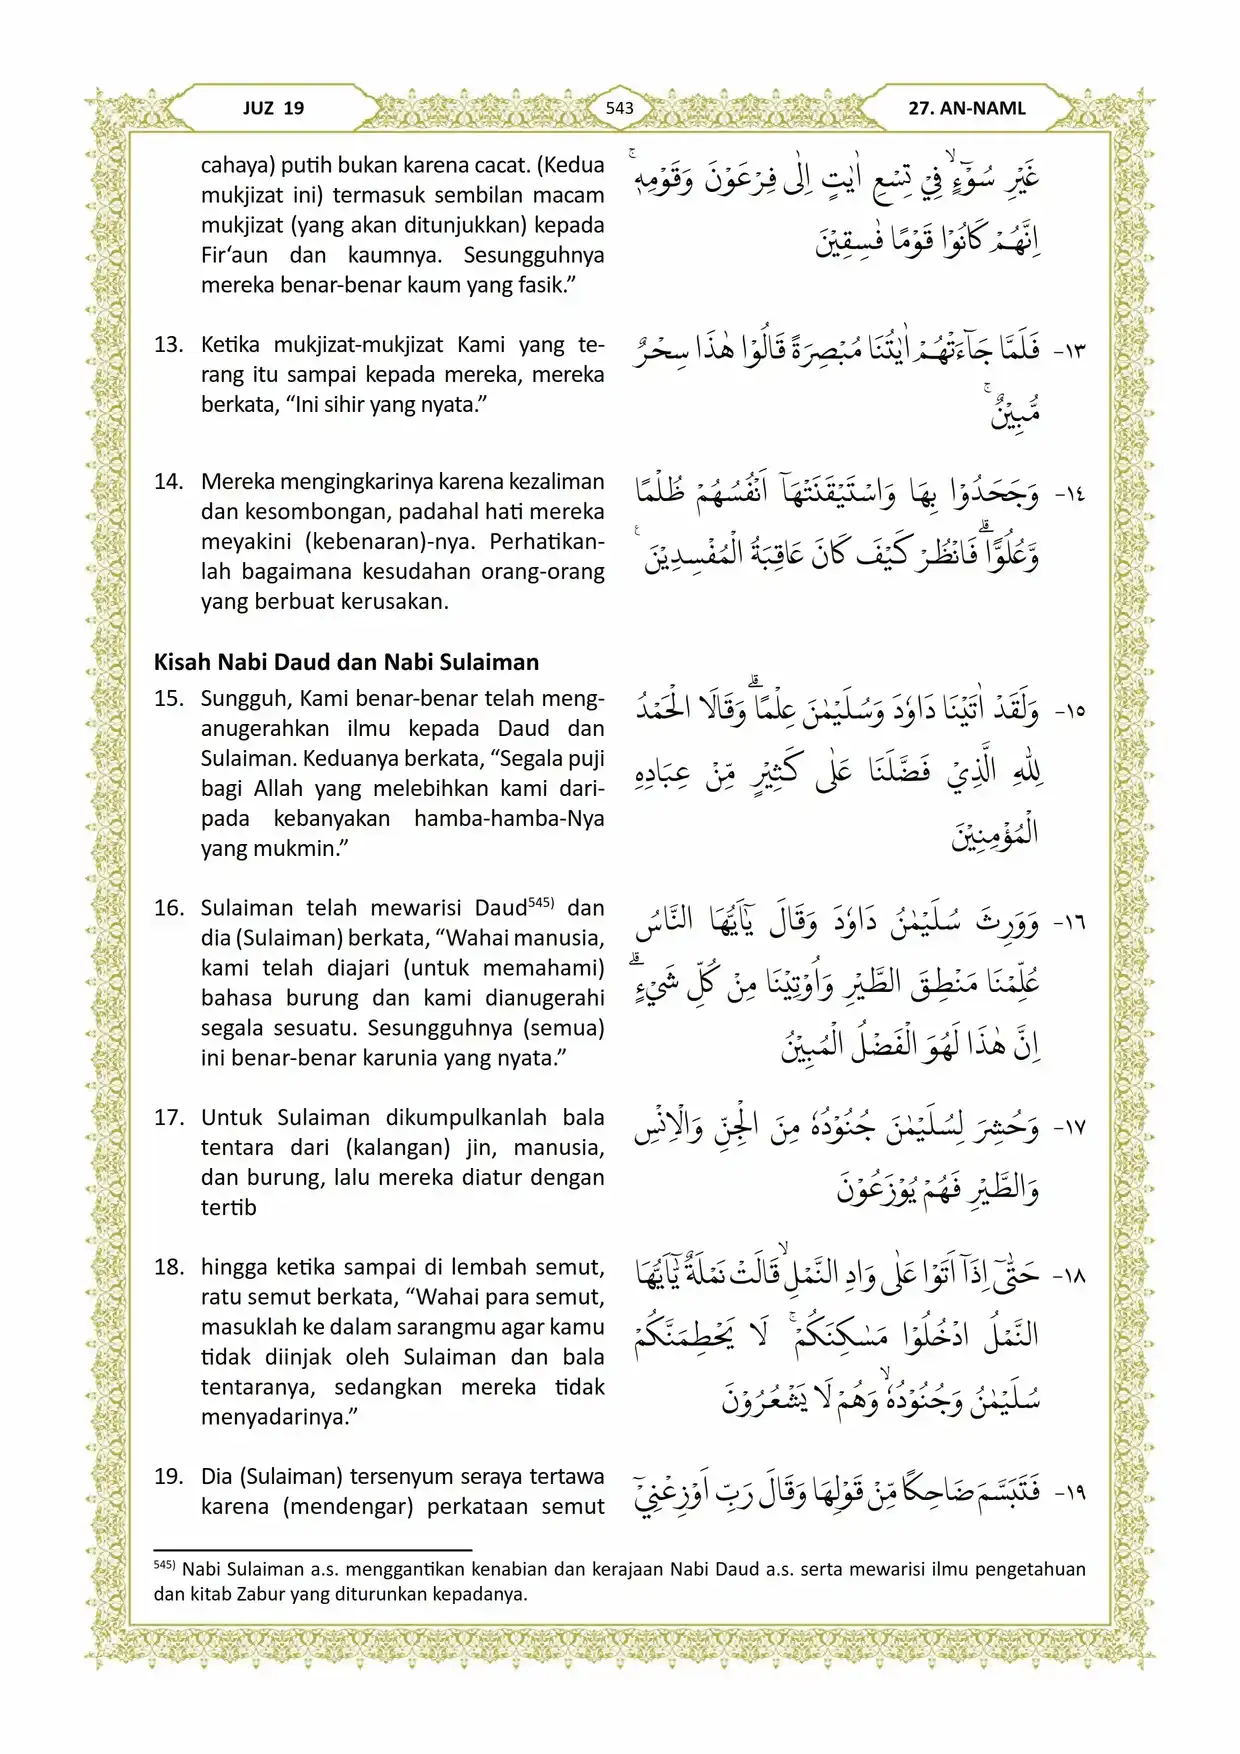 JUZ 19
543
27. AN-NAML
cahaya) putih bukan karena cacat. (Kedua
mukjizat ini) termasuk sembilan macam
mukjizat (yang akan ditunjukkan) kepada
Fir‘aun dan kaumnya. Sesungguhnya
mereka benar-benar kaum yang fasik.”
غَيْرِ سُوْۤءٍۙ فِيْ تِسْعِ اٰيٰتٍ اِلٰى فِرْعَوْنَ وَقَوْمِهٖۚ
اِنَّهُمْ كَانُوْا قَوْمًا فٰسِقِيْنَ
13. Ketika mukjizat-mukjizat Kami yang te-
rang itu sampai kepada mereka, mereka
berkata, “Ini sihir yang nyata.”
١٣- فَلَمَّا جَاۤءَتْهُمْ اٰيٰتُنَا مُبْصِرَةً قَالُوْا هٰذَا سِحْرٌ
مُّبِيْنٌۚ
14. Mereka mengingkarinya karena kezaliman
dan kesombongan, padahal hati mereka
meyakini (kebenaran)-nya. Perhatikan-
lah bagaimana kesudahan orang-orang
yang berbuat kerusakan.
١٤- وَجَحَدُوْا بِهَا وَاسْتَيْقَنَتْهَآ اَنْفُسُهُمْ ظُلْمًا
وَّعُلُوًّاۗ فَانْظُرْ كَيْفَ كَانَ عَاقِبَةُ الْمُفْسِدِيْنَ ࣖ
Kisah Nabi Daud dan Nabi Sulaiman
15. Sungguh, Kami benar-benar telah meng-
anugerahkan ilmu kepada Daud dan
Sulaiman. Keduanya berkata, “Segala puji
bagi Allah yang melebihkan kami dari-
pada kebanyakan hamba-hamba-Nya
yang mukmin.”
١٥- وَلَقَدْ اٰتَيْنَا دَاوٗدَ وَسُلَيْمٰنَ عِلْمًاۗ وَقَالَا الْحَمْدُ
لِلّٰهِ الَّذِيْ فَضَّلَنَا عَلٰى كَثِيْرٍ مِّنْ عِبَادِهِ
الْمُؤْمِنِيْنَ
16. Sulaiman telah mewarisi Daud⁵⁴⁵⁾ dan
dia (Sulaiman) berkata, “Wahai manusia,
kami telah diajari (untuk memahami)
bahasa burung dan kami dianugerahi
segala sesuatu. Sesungguhnya (semua)
ini benar-benar karunia yang nyata.”
١٦- وَوَرِثَ سُلَيْمٰنُ دَاوٗدَ وَقَالَ يٰٓاَيُّهَا النَّاسُ
عُلِّمْنَا مَنْطِقَ الطَّيْرِ وَاُوْتِيْنَا مِنْ كُلِّ شَيْءٍۗ
اِنَّ هٰذَا لَهُوَ الْفَضْلُ الْمُبِيْنُ
17. Untuk Sulaiman dikumpulkanlah bala
tentara dari (kalangan) jin, manusia,
dan burung, lalu mereka diatur dengan
tertib
١٧- وَحُشِرَ لِسُلَيْمٰنَ جُنُوْدُهٗ مِنَ الْجِنِّ وَالْاِنْسِ
وَالطَّيْرِ فَهُمْ يُوْزَعُوْنَ
18. hingga ketika sampai di lembah semut,
ratu semut berkata, “Wahai para semut,
masuklah ke dalam sarangmu agar kamu
tidak diinjak oleh Sulaiman dan bala
tentaranya, sedangkan mereka tidak
menyadarinya.”
١٨- حَتّٰىٓ اِذَآ اَتَوْا عَلٰى وَادِ النَّمْلِۙ قَالَتْ نَمْلَةٌ يّٰٓاَيُّهَا
النَّمْلُ ادْخُلُوْا مَسٰكِنَكُمْۚ لَا يَحْطِمَنَّكُمْ
سُلَيْمٰنُ وَجُنُوْدُهٗۙ وَهُمْ لَا يَشْعُرُوْنَ
19. Dia (Sulaiman) tersenyum seraya tertawa
karena (mendengar) perkataan semut
١٩- فَتَبَسَّمَ ضَاحِكًا مِّنْ قَوْلِهَا وَقَالَ رَبِّ اَوْزِعْنِيْٓ
⁵⁴⁵⁾ Nabi Sulaiman a.s. menggantikan kenabian dan kerajaan Nabi Daud a.s. serta mewarisi ilmu pengetahuan
dan kitab Zabur yang diturunkan kepadanya.